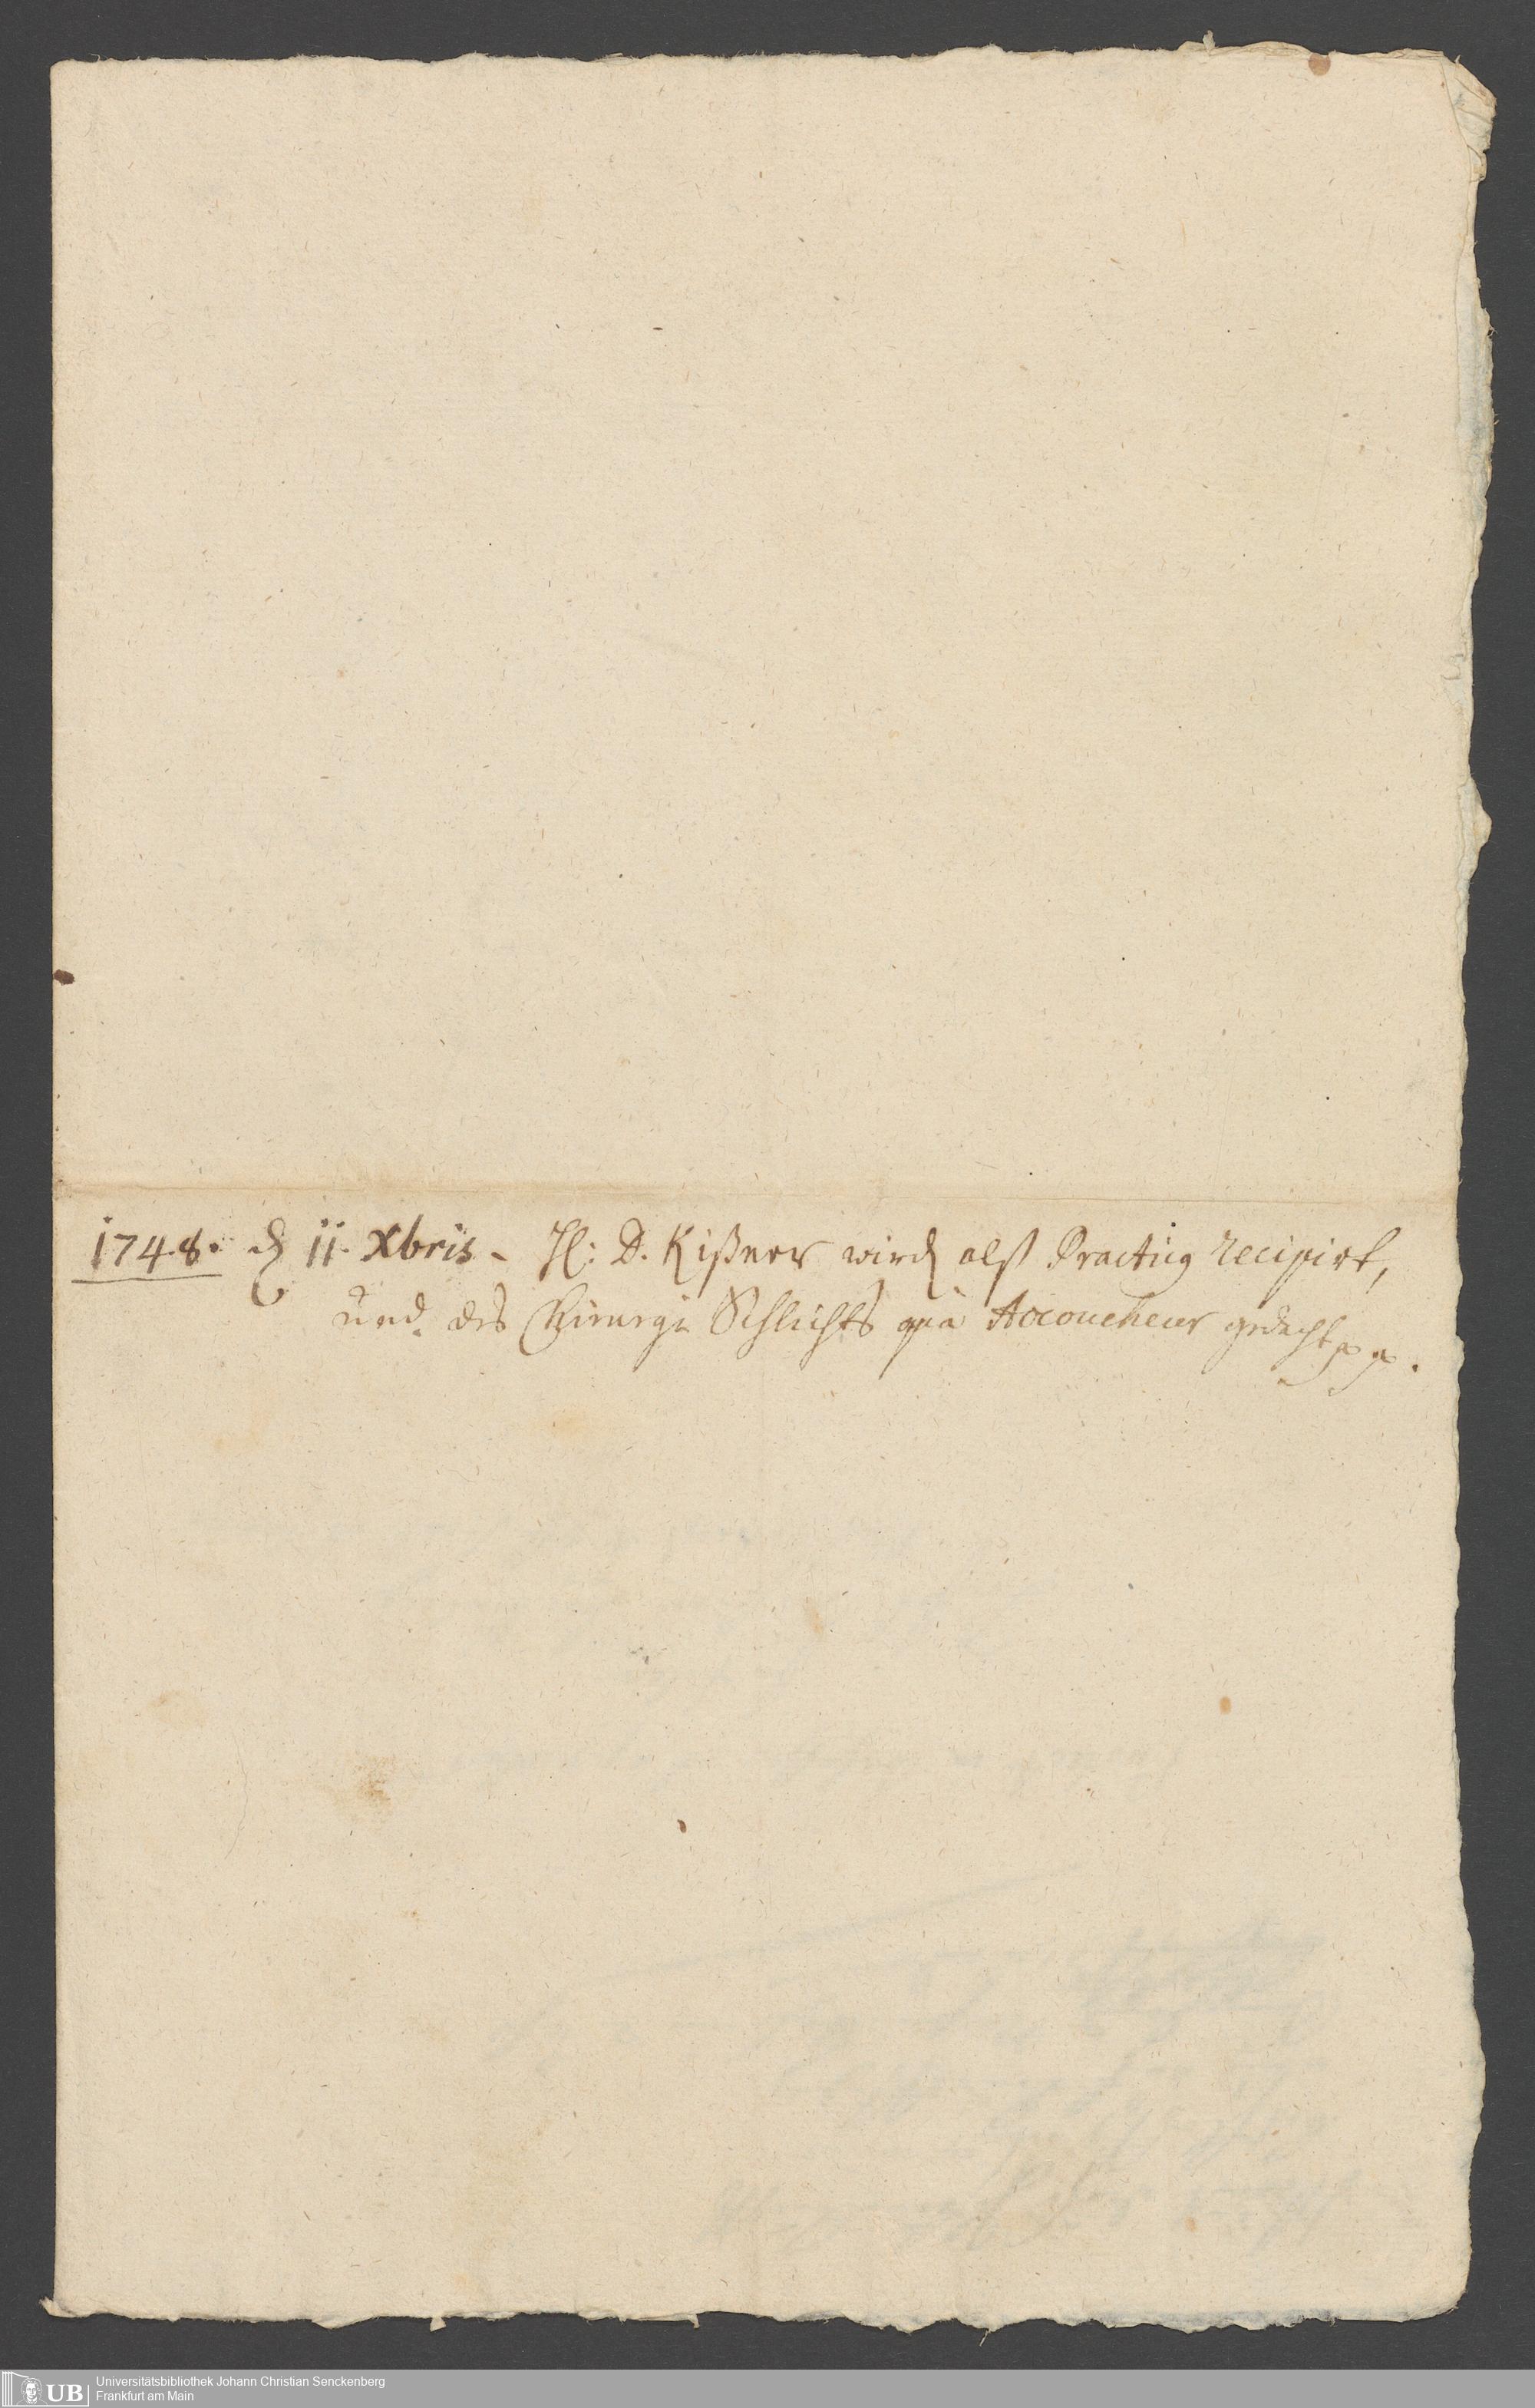 1748. d 11. Xbris. H: D. Kißner wird alß Practicq recipirt,
und des Chirurgi Schlichts quà Accoucheur gedacht pp.
Universitätsbibliothek Johann Christian Senckenberg
UB Frankfurt am Main